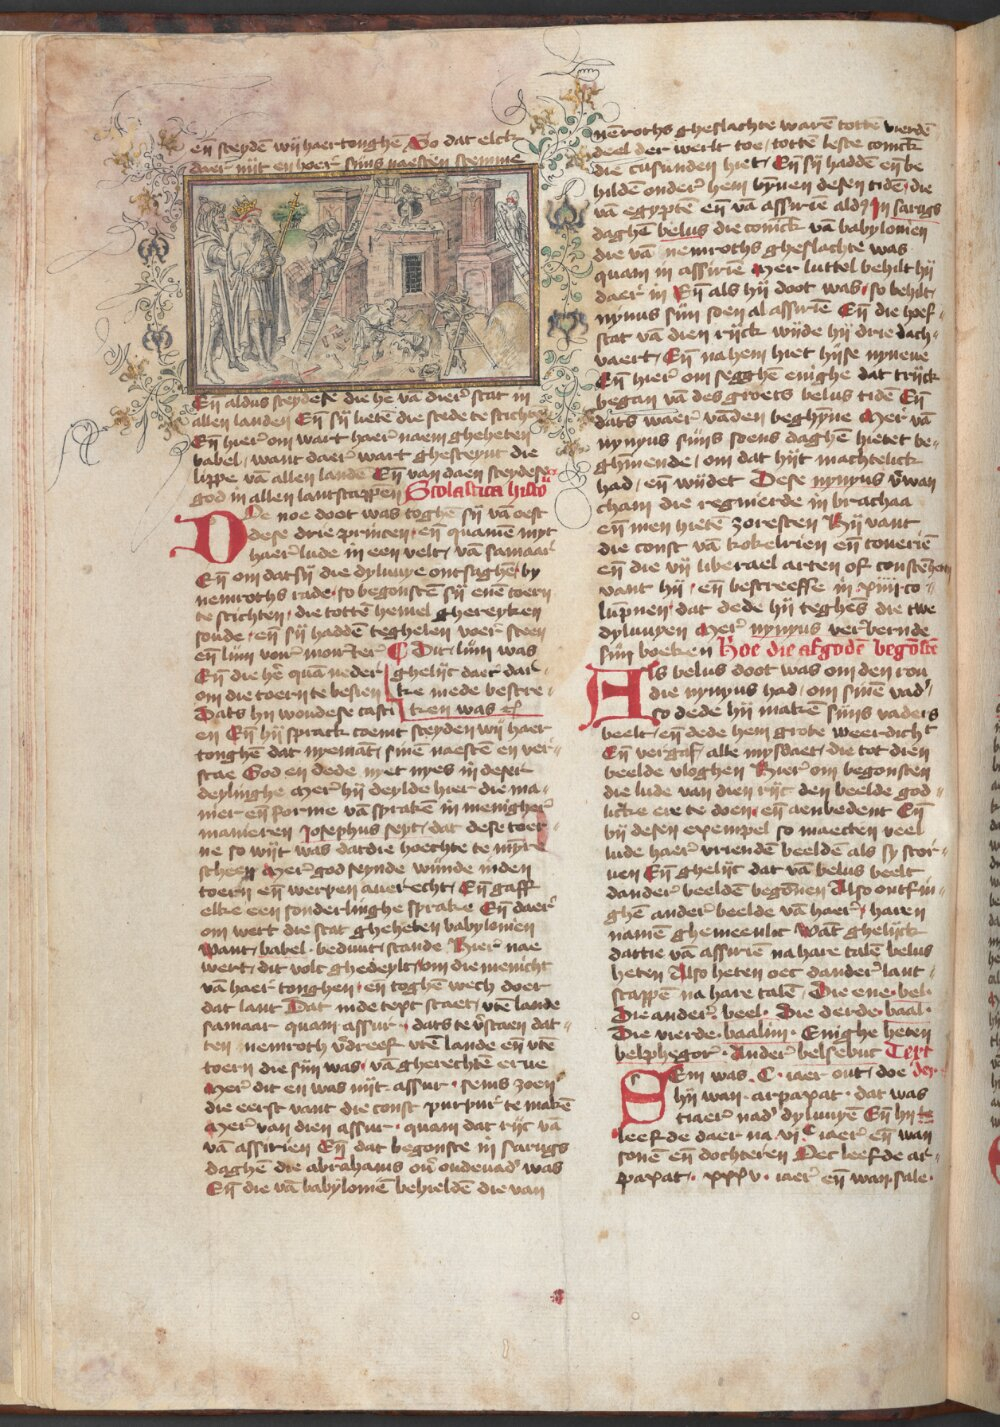 en̄ sceydē wij haer tonghē So dat elck
daer nijt en hoer sijns naesten stemme
En̄ aldus sceydese die he vā dier stat in
allen landen En̄ sy lietē die stede te stichtē
En̄ hier om wart haer naem gheheten
babel / want daer wart ghesceynt die
lippe vā allen landē En̄ van daen sceydese
god in allen lantscappen Scolastica histo
Doe noe doot was toghē sy vā oest
dese drie princen en̄ quamē myt
haer lude in een velt / vā samaar
En̄ om dat sy die dyluuye ontsaghē by
nemroths rade so begonstē sy enē toern
te stichten / die tottē hemel ghereyken
soude / en̄ sy haddē teghelen voer steen
en̄ lijm voir morter Dit lijm was
En̄ die he quā neder ghelijc daer dat
om die toern te besien ke mede bestre
Dats hij woudese casti ken was
en En̄ hij sprack coemt sceyden wij haer
tonghē dat nyemāt sinē naestē en ver
stae God en dede niet nyes in deser
deylinghe Mer hij deylde hier die ma
nier en̄ forme vā sprakē in menigher
manieren Josephus seyt / dat dese toer
ne so wijt was dat die hoechte te mijre
scheen Mer god seynde wijnde inden
toern en̄ werpen auerecht / En̄ gaff
elke een sonderlinghe sprake En̄ daer
om wert die stat gheheten babylonien
Want babel beduut scande Hier nae
wert dit volc ghedeylt / om die menicht
vā haer tonghen en̄ toghē wech doer
dat lant Dat inde text staet / vtē lande
samaar quam assur dats te v̄staen dat
ten nemroth v̄dreef vtē lande en̄ vtē
toern die sijn was / vā gherechten erue
Mer dit en was nijt assur sems zoen
die eerst vant die const purpur te makē
Mer van dien assur quam dat rijc vā
vā assirien En̄ dat begonste in sarugs
daghē die abrahams oud' oudeuad' was
En̄ die vā babylomē behieldē die van
nēroths gheslachte warē totten vierdē
deel der werlt toe / tottē leste conick
die cusunden hiet / En̄ sy haddē en̄ be
hildē onder hem bynnen desen tidē die
vā egyptē en̄ vā assiriē al dat In sarugs
daghē belus die conick vā babylonien
die vā nemroths gheslachte was
quam in assiriē Mer luttel behilt hij
daer in En̄ als hij doot was so behilt
nynus sijn soen al assiriē En̄ die hoef
stat vā dien rijck wijde hij drie dach
vaert / En̄ na hem hiet hijse nyneue
En̄ hier om segghē enighe dat trijck
began vā des groets belus tidē En̄
dats waer vāden beghyne Mer vā
nynyus sijns soens daghē hietet be
ghinnende / om dat hijt machtelick
had / en̄ wijdet Dese nynus v̄wan
cham die regnierde in brachaa
en̄ men hietē zoresten Hij vant
die const vā kokelrien en̄ toueriē
en̄ die vij liberael arten of constēhen
vant hij / en̄ bescreefse in xiiij co
lūpnen / dat dede hij teghēs die twe
dyluuyen Mer nynyus verbernde
sijn boeken Hoe die afgodē begostē
Als belus doot was om den rou
die nynyus had / om sinē vad'
so dede hij makē sijns vaders
beelt / en̄ dede hem grote weerdicht
En̄ vergaf / alle mysdaet / die tot dien
beelde vloghen Hier om begonsten
die lude van dien rijc den beelde god
licke ere te doen en̄ aenbedent En̄
bij desen exempel so maecten veel
lude haer vriendē beeldē als sy stor
uen En̄ ghelijc dat vā belus beelt
dander beeldē begōnen Also ontfin
ghē ander beelde vā haer haren
namē ghemeenlic Wāt ghelijck
dattie vā assiriē na hare talē belus
heten Also heten oec dander lant
scappē na hare talē / Die ene bel
Die ander beel Die derde baal
Die vierde baalim Enighe heten
belphegor Ander belsebut Text
Sem was C iaer out / doe der
hij wan arpaxat dat was
tiaer nad' dyluuyē En̄ hij
leefde daer na vi C iaer en̄ wan
sonē en̄ dochteren Oec leefde ar
paxat xxxv iaer en̄ wan sale